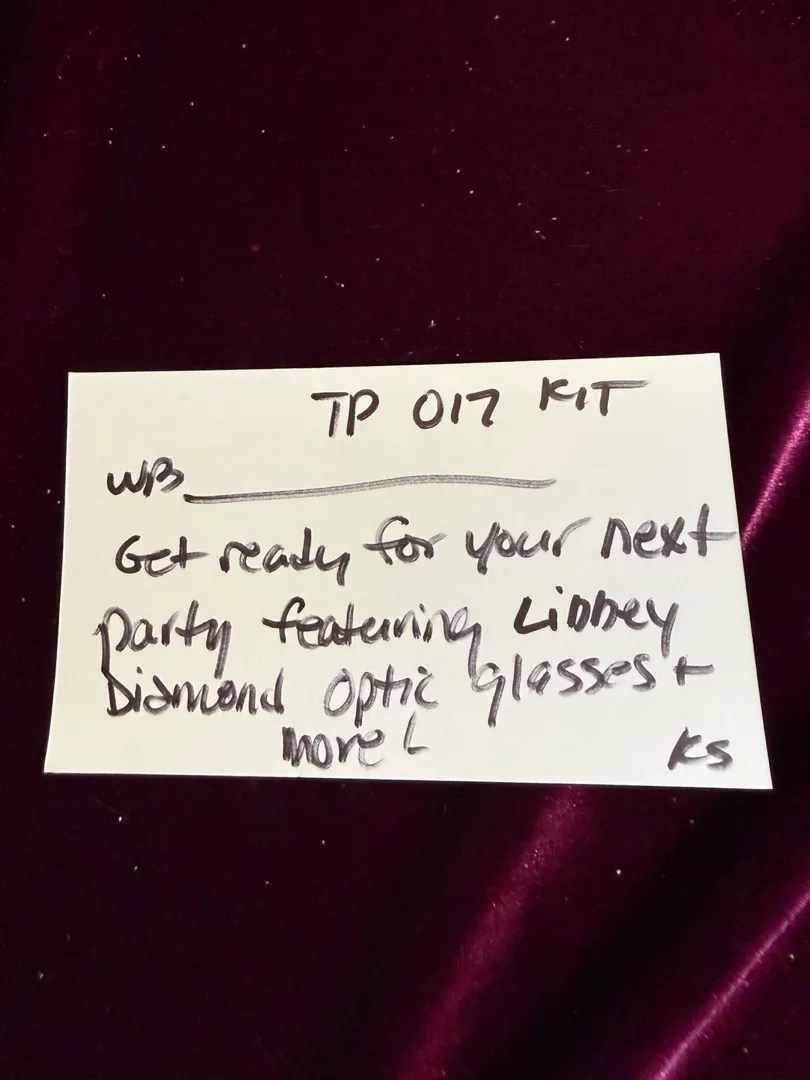 TP 017 KIT
WB
Get ready for your next
party featuring Libbey
Diamond Optic glasses +
more!
KS